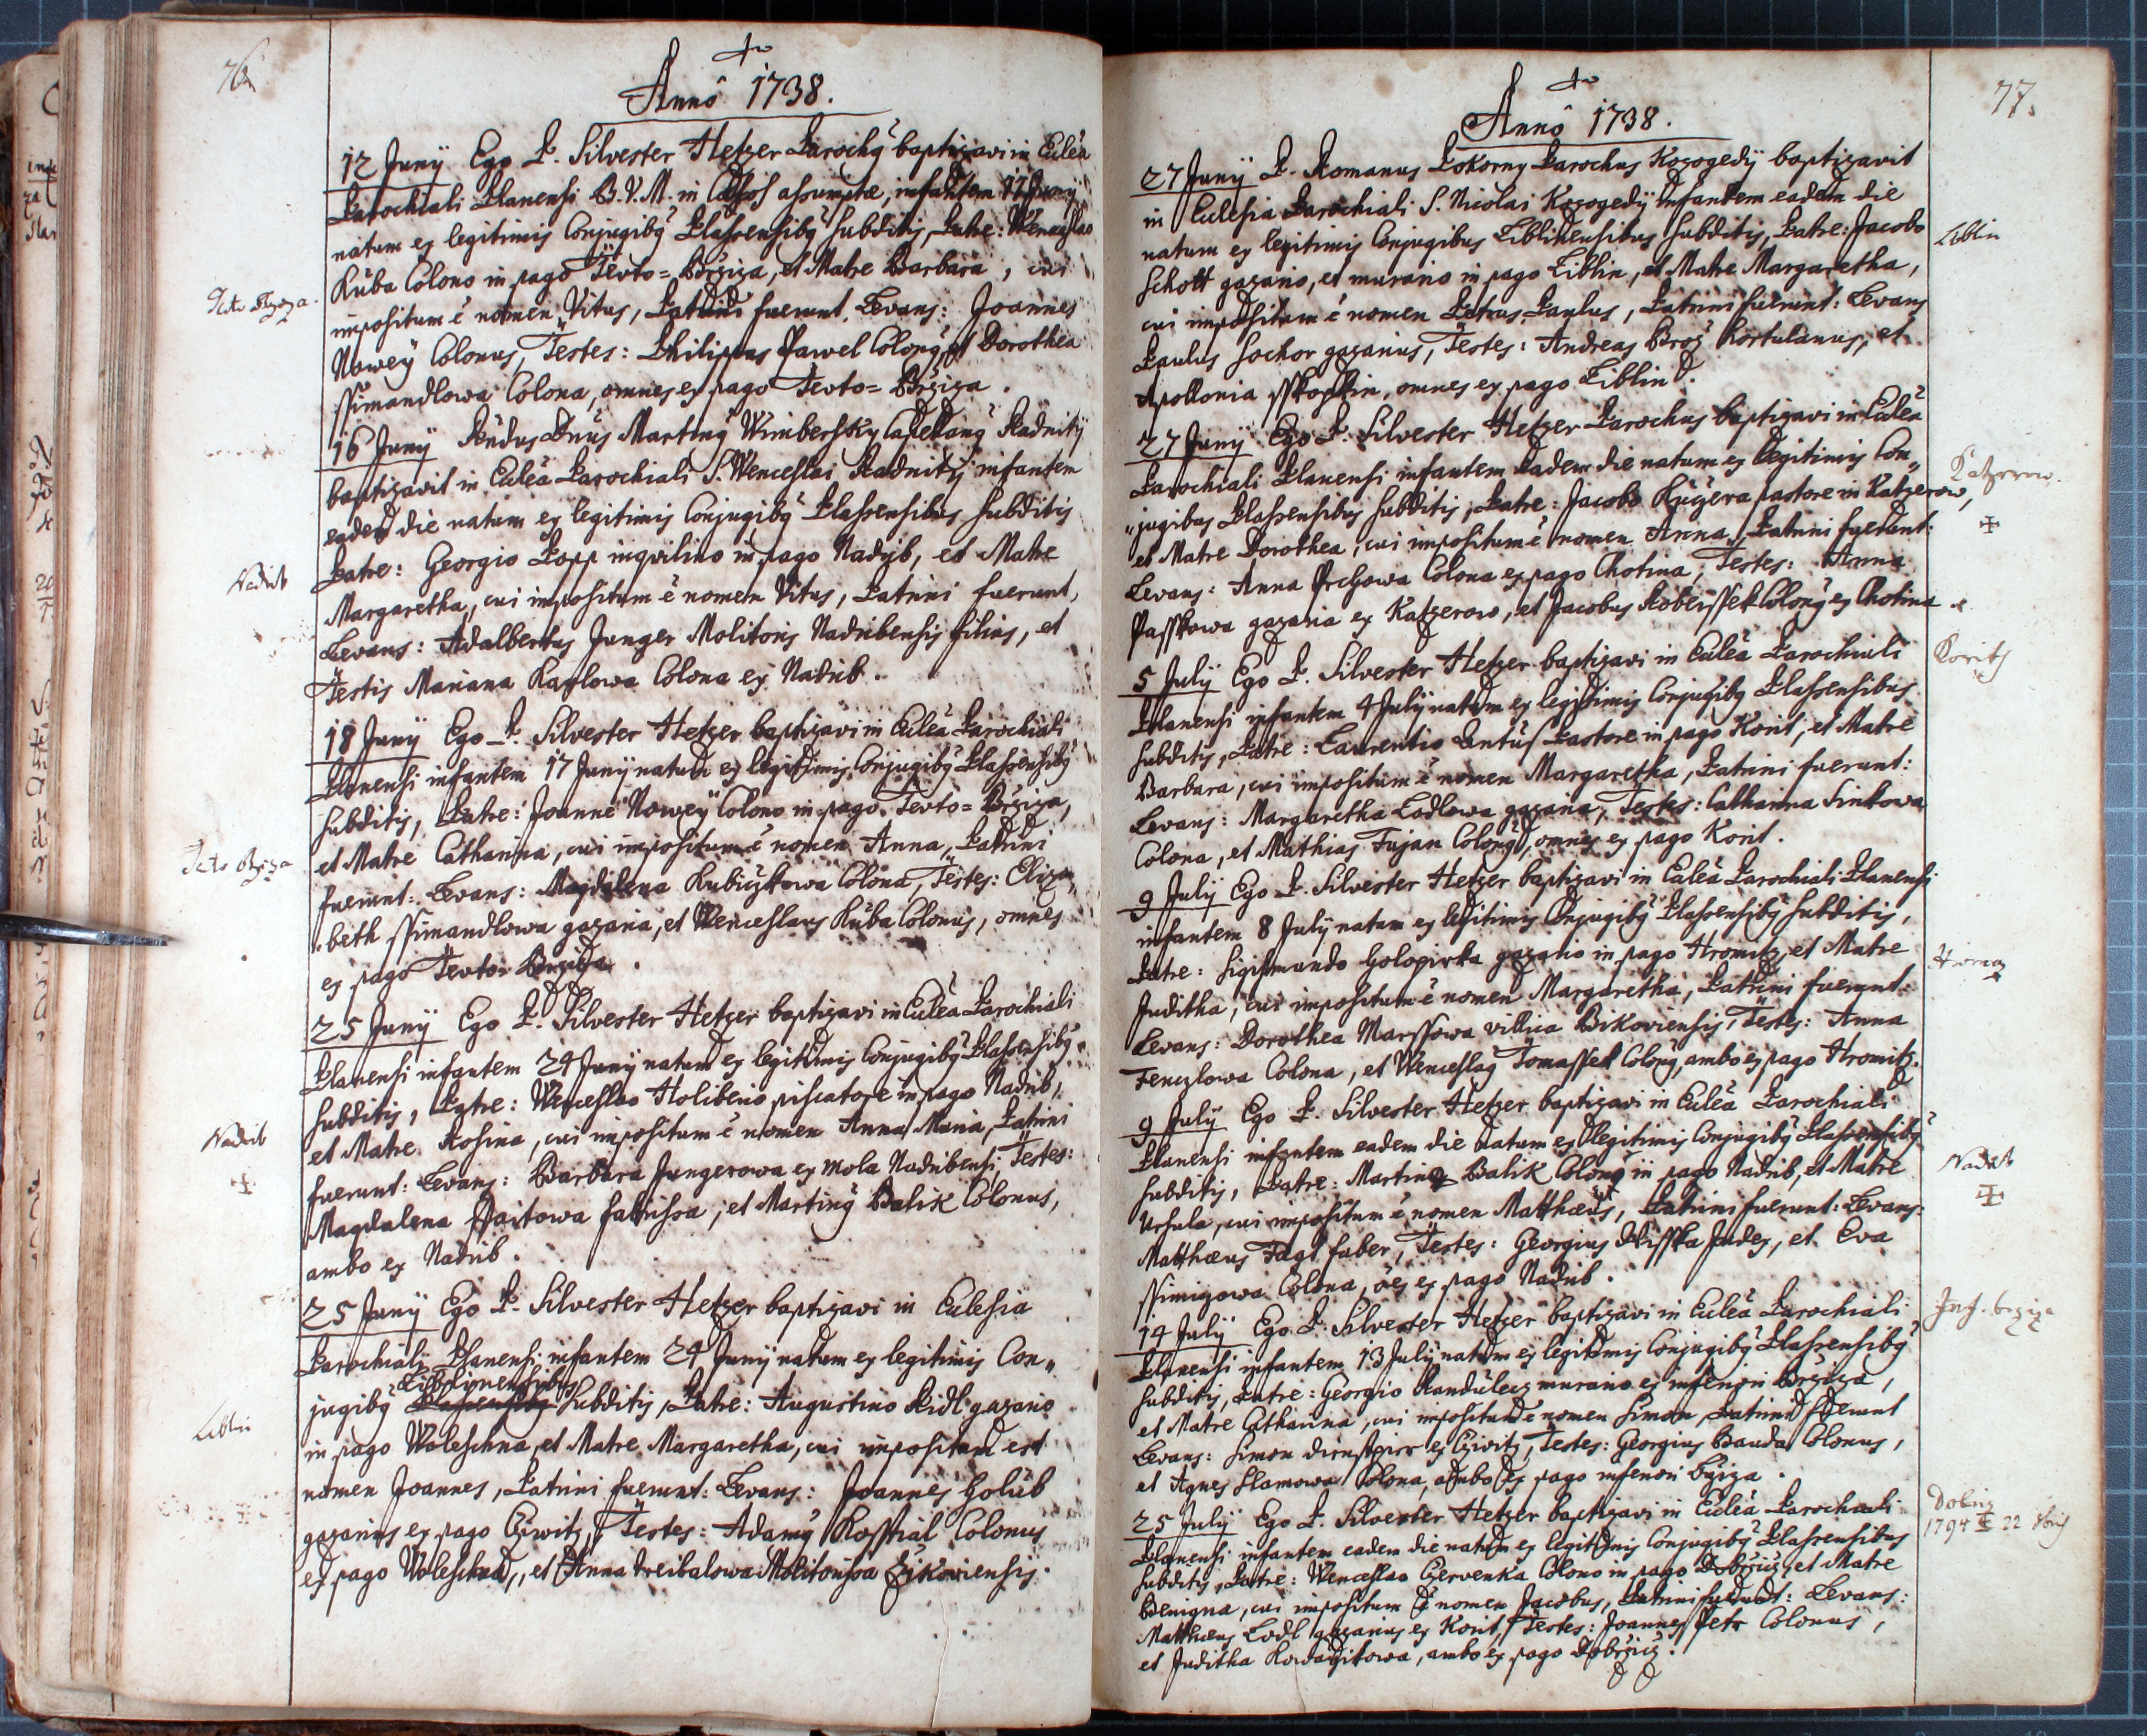 76
Annô 1738.
12 Junÿ Ego P. Silvester Hetzer Parochꝰ baptizavi in Ecclea
Parochiali Planensi B.V.M. in Cœlos assumptæ, infantem 11 Junÿ
natum ex legitimis Conjugibꝰ Plassensibꝰ subditis, Patre: Wenceslao
Kuba Colono in pago Teuto=Brziza, et Matre Barbara, cui
impositum ē nomen Vitus, Patrini fuerunt. Levans: Joannes
Nowey Colonus, Testes: Philippus Pawel Colonꝰ, et Dorothea
Ssimandlowa Colona, omnes ex pago Teuto=Brziza.
16 Junÿ Rndus Dnus Martinꝰ Wimbersky Capellanꝰ Radnity
baptizavit in Ecclea Parochiali S. Wenceslai Radnity infantem
eadem die natum ex legitimis Conjugibꝰ Plassensibus subditis
Patre: Georgio Popp inqvilino in pago Nadrÿb, et Matre
Margaretha, cui impositum ē nomen Vitus, Patrini fuerunt,
Levans: Adalbertus Junger Molitoris Nadribensis filius, et
Testis Mariana Karlowa Colona ex Nadrib.
18 Junÿ Ego P. Silvester Hetzer baptizavi in Ecclea Parochiali
Planensi infantem 17 Junÿ natum ex legitimis Conjugibꝰ Plassensibꝰ
subditis, Patre: Joanne Nowey Colono in pago Teuto=Brziza,
et Matre Catharina, cui impositum ē nomen Anna, Patrini
fuerunt: Levans: Magdalena Kubiczkowa Colona, Testes: Eliza,,
beth Ssimandlowa gazaria, et Wenceslaus Kuba Colonus, omnes
ex pago Teuto Brziza.
25 Junÿ Ego P. Silvester Hetzer baptizavi in Ecclea Parochiali
Planensi infantem 24 Junÿ natam ex legitimis Conjugibꝰ Plassensibꝰ
subditis, Patre: Wenceslao Holibero piscatore in pago Nadrib,
et Matre Rosina, cui impositum ē nomen Anna Maria, Patrini
fuerunt: Levans: Barbara Jungerowa ex mola Nadribensi, Testes:
Magdalena Pajtowa fabrissa, et Martinꝰ Balik Colonus,
ambo ex Nadrib.
25 Junÿ Ego P. Silvester Hetzer baptizavi in Ecclesia
Parochiali Planensi infantem 24 Junÿ natum ex legitimis Con,,
jugibꝰ Liblinensibus subditis, Patre: Augustino Ridl gazario
in pago Woleschna, et Matre Margaretha, cui impositum est
nomen Joannes, Patrini fuerunt: Levans: Joannes Golub
gazarius ex pago Cziwitz, Testes: Adamꝰ Kossial Colonus
ex pago Woleschna, et Anna Treibalowa Molitorissa Zikowiensis.
Teuto Brziza.
Nadrib
Teuto Brziza
Nadrib
Liblin
77.
Annô 1738.
27 Junÿ P. Romanus Pokorny Parochus Kozogedÿ baptizavit
in Ecclesia Parochiali S. Nicolai Kozogedÿ infantem eadem die
natum ex legitimis Conjugibus Liblinensibus subditis, Patre: Jacobo
Schott gazario, et murario in pago Liblin, et Matre Margaretha,
cui impositum ē nomen Petrus Paulus, Patrini fuerunt: Levans
Paulus Sochor gazarius, Testes: Andreas Broz Hortulanus, et
Apollonia Sskopkin, omnes ex pago Liblin.
27 Junÿ Ego P. Silvester Hetzer Parochus baptizavi in Ecclea
Parochiali Planensi infantem eadem die natam ex legitimis Con,,
jugibus Plassensibus subditis, Patre: Jacobo Kučera pastore in Katzerow,
et Matre Dorothea, cui impositum ē nomen Anna, Patrini fuerunt:
Levans: Anna Prchowa Colona ex pago Chotina, Testes: Anna
Passkowa gazaria ex Katzerow, et Jacobus Robeissek Colonꝰ ex Chotina.
5 Julÿ Ego P. Silvester Hetzer baptizavi in Ecclea Parochiali
Planensi infantem 4 Julÿ natam ex legitimis Conjugibꝰ Plassensibus
subditis, Patre: Laurentio Antuss Pastore in pago Korit, et Matre
Barbara, cui impositum ē nomen Margaretha, Patrini fuerunt:
Levans: Margaretha Lodlowa gazaria, Testes: Catharina Sinkowa
Colona, et Mathias Fujan Colonꝰ, omnes ex pago Korit.
9 Julÿ Ego P. Silvester Hetzer baptizavi in Ecclea Parochiali Planensi
infantem 8 Julÿ natam ex legitimis Conjugibꝰ Plassensibꝰ subditis,
Patre: Sigismundo Golopirka gazario in pago Hromitz, et Matre
Juditha, cui impositum ē nomen Margaretha, Patrini fuerunt:
Levans: Dorothea Marssowa villica Bikoviensis, Testes: Anna
Fenczlowa Colona, et Wenceslaꝰ Tomassek Colonꝰ, ambo ex pago Hromitz.
9 Julÿ Ego P. Silvester Hetzer baptizavi in Ecclea Parochiali
Planensi infantem eadem die natum ex legitimis Conjugibꝰ Plassensibꝰ
subditis, Patre: Martino Balik Colono in pago Nadrib, et Matre
Ursula, cui impositum ē nomen Matthæus, Patrini fuerunt: Levans:
Matthæus Fagt faber, Testes: Georgius Wisska Judex, et Eva
Ssimizowa Colona, ōes ex pago Nadrib.
14 Julÿ Ego P. Silvester Hetzer baptizavi in Ecclea Parochiali
Planensi infantem 13 Julÿ natum ex legitimis Conjugibꝰ Plassensibꝰ
subditis, Patre: Georgio Randulecz murario ex inferiori Brziza,
et Matre Catharina, cui impositum ē nomen Simon, Patrini fuerunt
Levans: Simon Dienstpier ex Cziwitz, Testes: Georgius Bauda Colonus,
et Agnes Slamowa Colona, ambo ex pago inferiori Brziza.
25 Julÿ Ego P. Silvester Hetzer baptizavi in Ecclea Parochiali
Planensi infantem eadem die natum ex legitimis Conjugibꝰ Plassensibus
subditis, Patre: Wenceslao Czervenka Colono in pago Dobrzicz, et Matre
Benigna, cui impositum ē nomen Jacobus, Patrini fuerunt: Levans:
Matthæus Lodl gazarius ex Korit, Testes: Joannes Petr Colonus,
et Juditha Kowarzikowa, ambo ex pago Dobrzicz.
Liblin
Katzerow.
Korits
Hromitz
Nadrib
Inf. brziza
Dobriz
1794 22